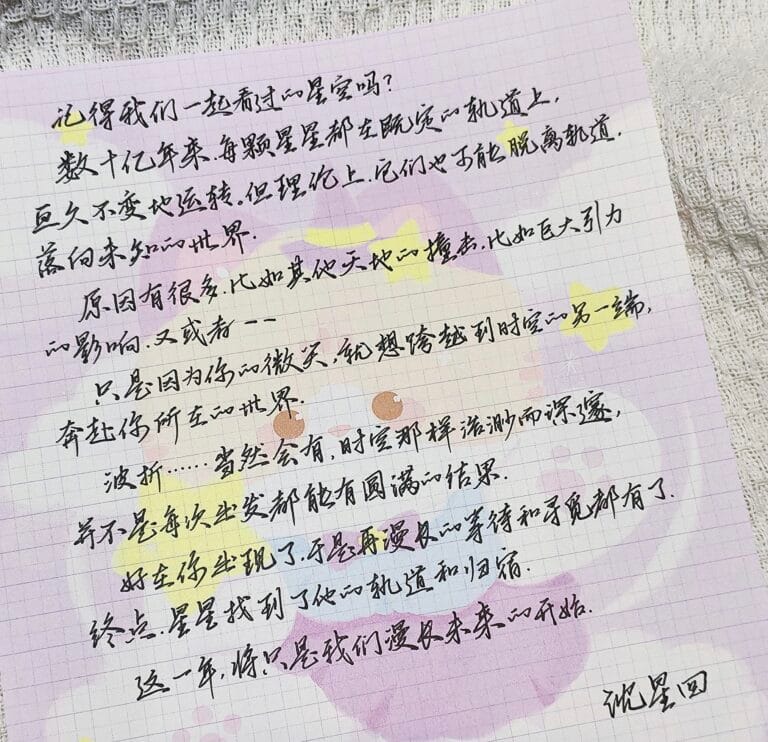 记得我们一起看过的星空吗？
数十亿年来，每颗星星都在既定的轨道上，
亘久不变地运转。但理论上，它们也可能脱离轨道，
落向未知的世界.
原因有很多，比如其他天地的撞击，比如巨大引力
的影响，又或者——
只是因为你的微笑，就想跨越到时空的另一端，
奔赴你所在的世界.
波折……当然会有，时空那样浩渺而深邃，
并不是每次出发都能有圆满的结果.
好在你出现了，于是再漫长的等待和寻觅都有了
终点，星星找到了他的轨道和归宿.
这一年，将只是我们漫长未来的开始.
沈星回